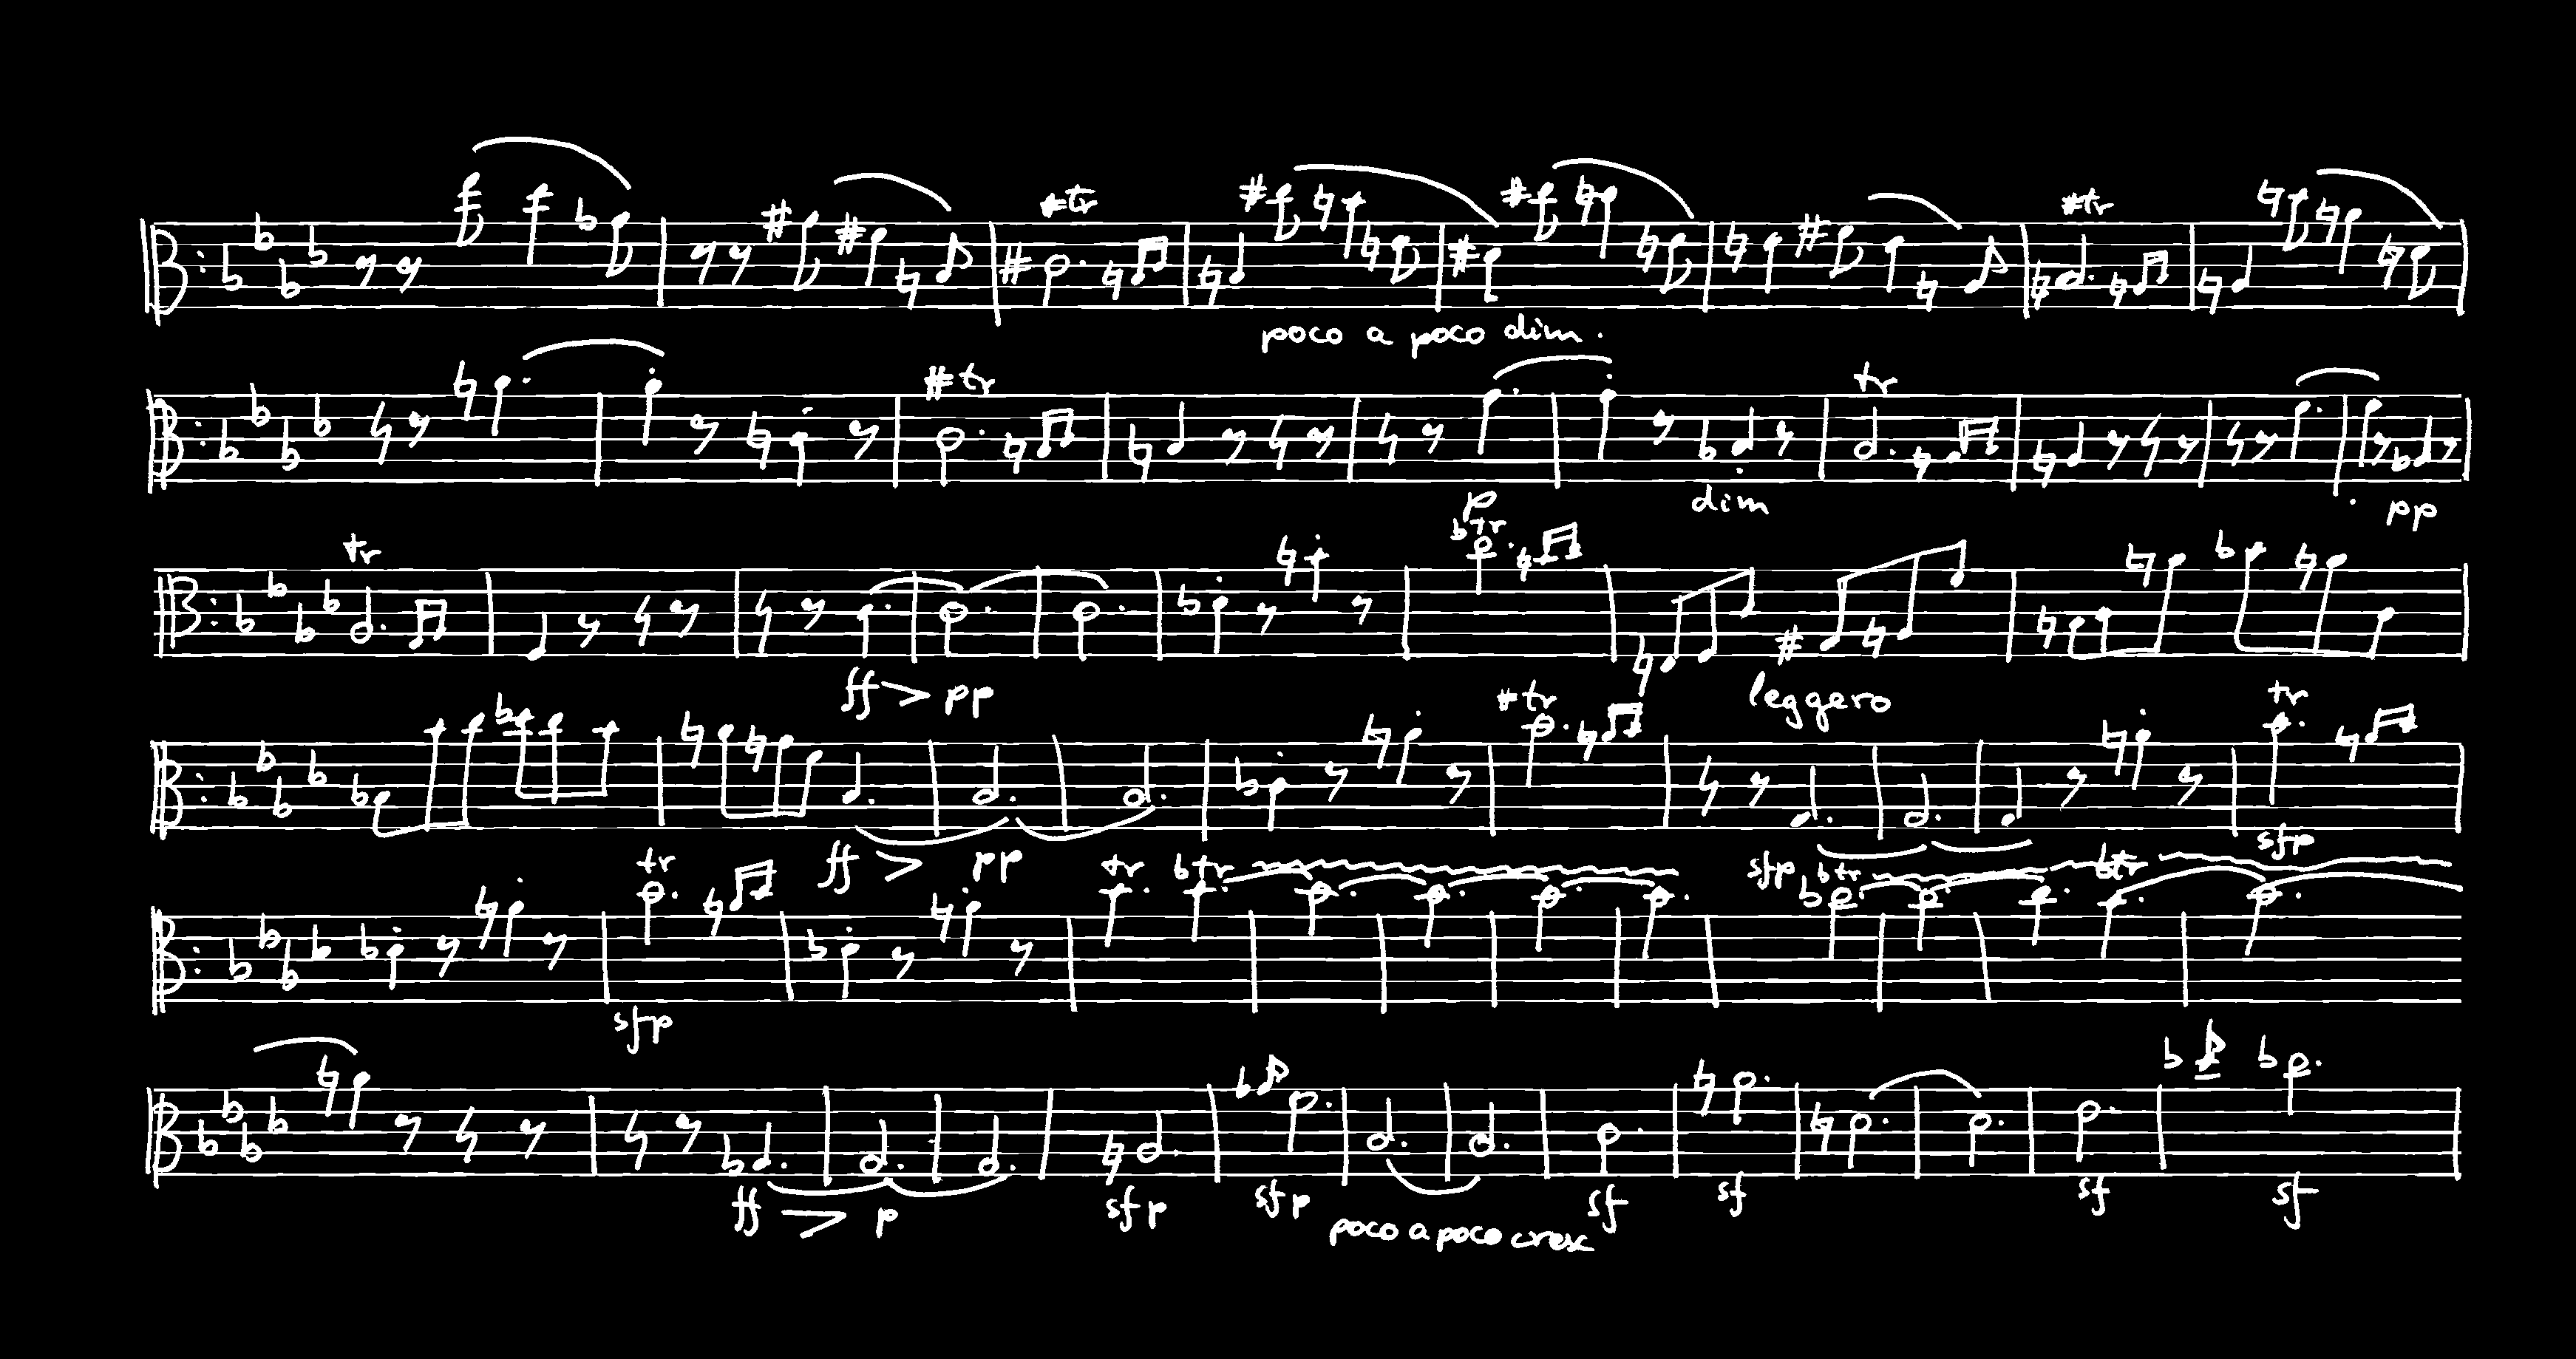 tr tr
poco a poco dim.
tr tr
p dim pp
tr tr
ff pp leggero
tr tr
ff pp sfp
tr tr tr sfp tr tr
sfp
ff p sfp sfp sf sf sf sf
poco a poco cresc